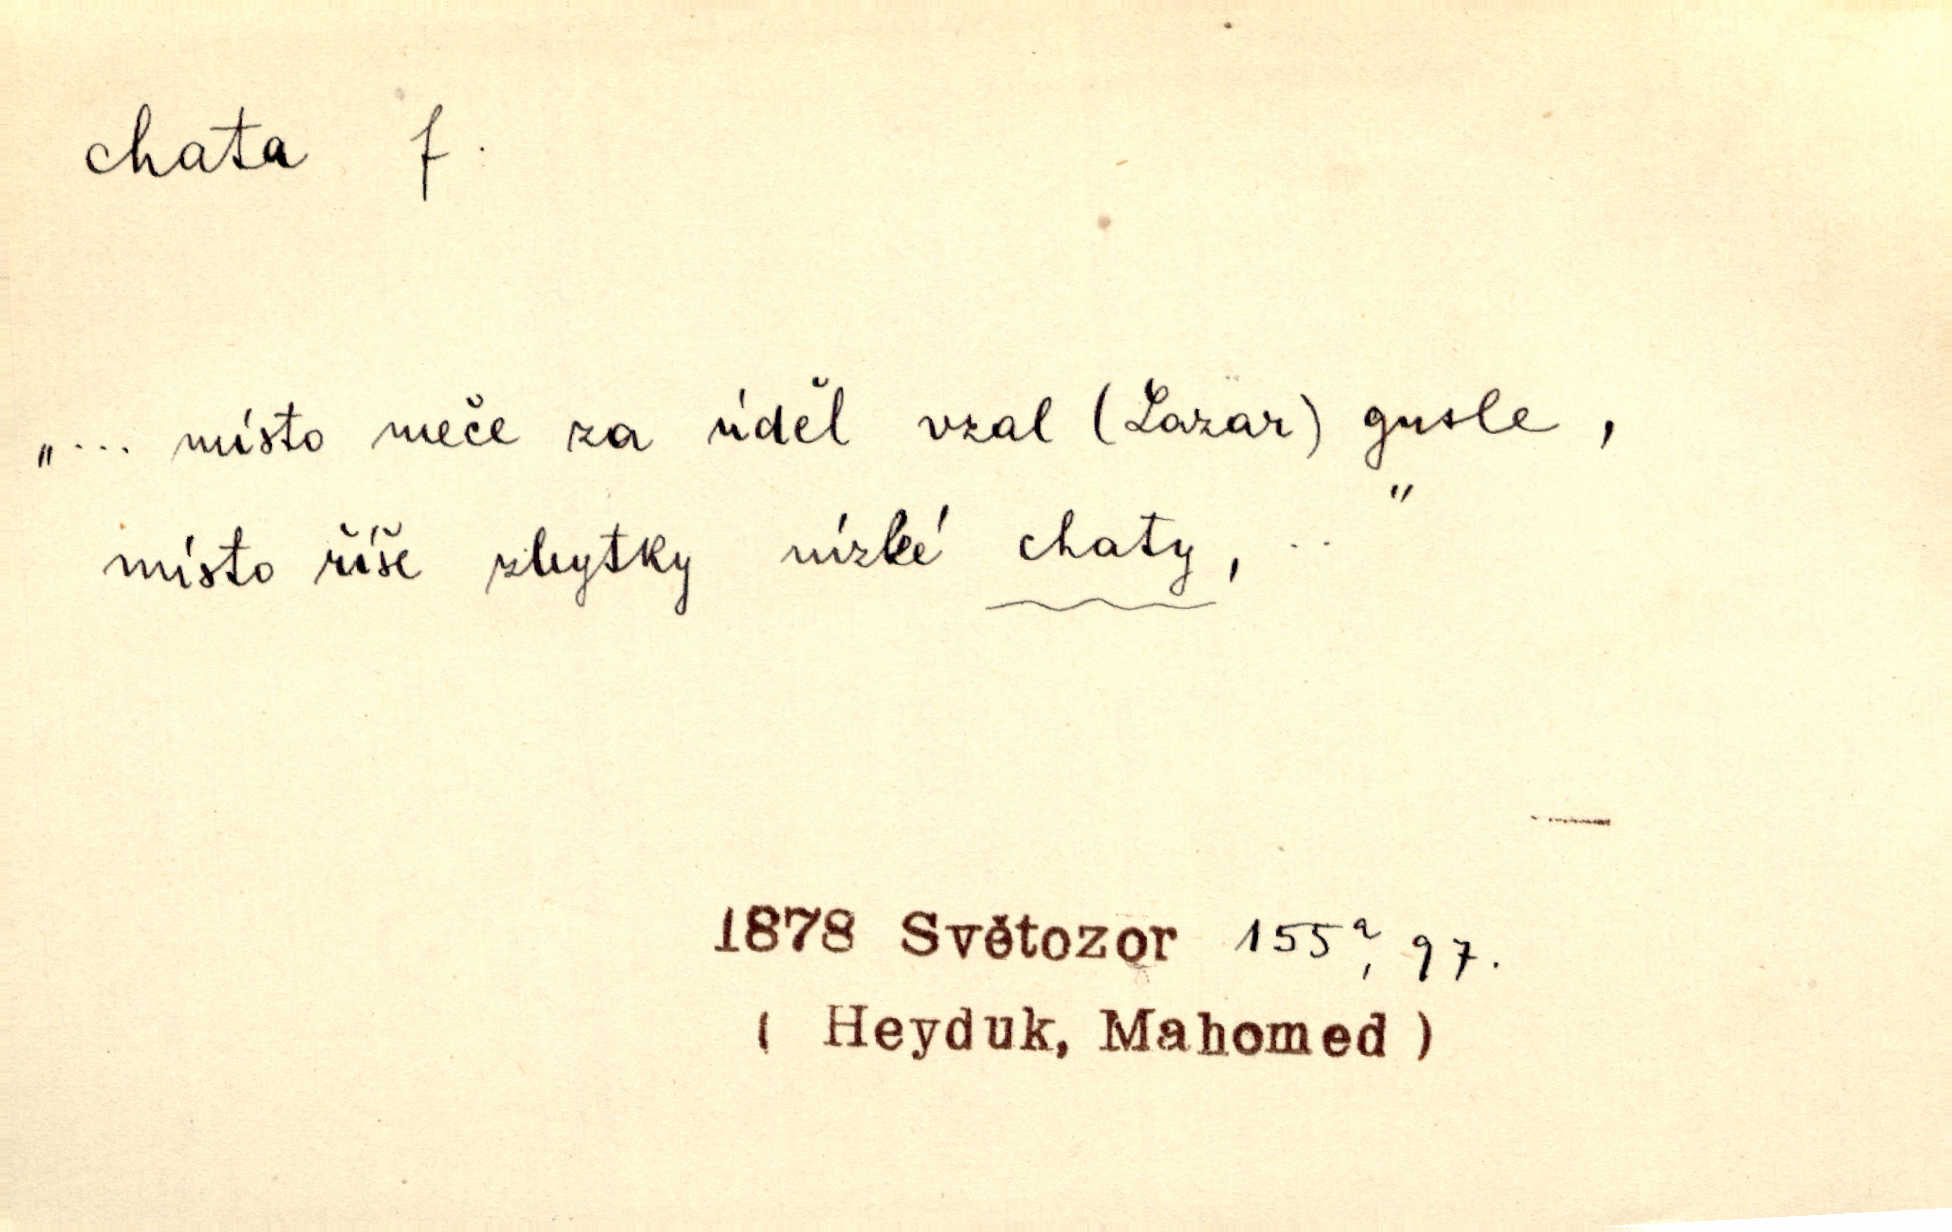 chata f.
„... místo meče za úděl vzal (Lazar) gusle,
místo říše zbytky nízké chaty, .. "
1878 Světozor 155a, 97.
( Heyduk, Mahomed )